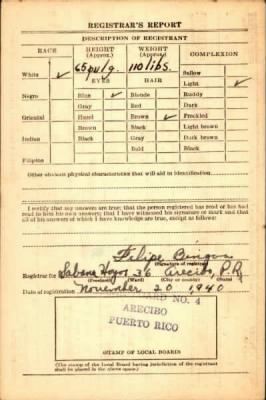 REGISTRAR'S REPORT
DESCRIPTION OF REGISTRANT
RACE HEIGHT (Approx.) WEIGHT (Approx.) COMPLEXION
White ✓ 65 pulg. 110 libs. Sallow
EYES HAIR Light ✓
Negro Blue ✓ Blonde Ruddy
Gray Red Dark
Oriental Hazel Brown ✓ Freckled
Brown Black Light brown
Indian Black Gray Dark brown
Bald Black
Filipino
Other obvious physical characteristics that will aid in identification
I certify that my answers are true; that the person registered has read or has had
read to him his own answers; that I have witnessed his signature or mark and that
all of his answers of which I have knowledge are true, except as follows:
Felipe
(Signature of registrar)
Registrar for Sabana Hoyos 36 Arecibo, P.R.
(Precinct) (Ward) (City or County) (State)
Date of registration November 20 1940
BOARD NO. 4
ARECIBO
PUERTO RICO
STAMP OF LOCAL BOARD
(The stamp of the Local Board having jurisdiction of the registrant
shall be placed in the above space.)